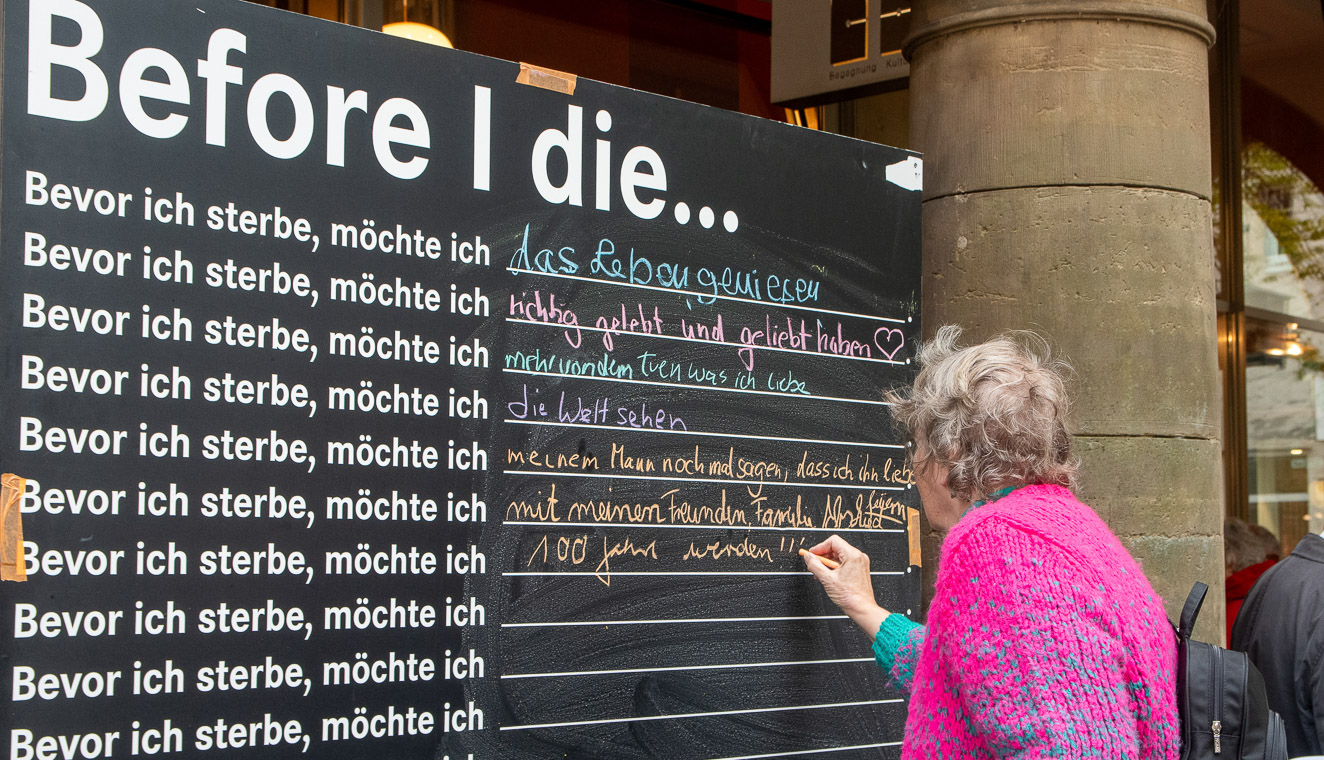 Begegnung Kultur
Before I die...
Bevor ich sterbe, möchte ich das Leben geniesen.
Bevor ich sterbe, möchte ich richtig gelebt und geliebt haben ♡.
Bevor ich sterbe, möchte ich mehr von dem tuen was ich liebe
Bevor ich sterbe, möchte ich die Welt sehen
Bevor ich sterbe, möchte ich meinem Mann noch mal sagen, dass ich ihn liebe
Bevor ich sterbe, möchte ich mit meinen Freunden, Familie Abschied feiern
Bevor ich sterbe, möchte ich 100 Jahre werden!!!.
Bevor ich sterbe, möchte ich .
Bevor ich sterbe, möchte ich
Bevor ich sterbe, möchte ich